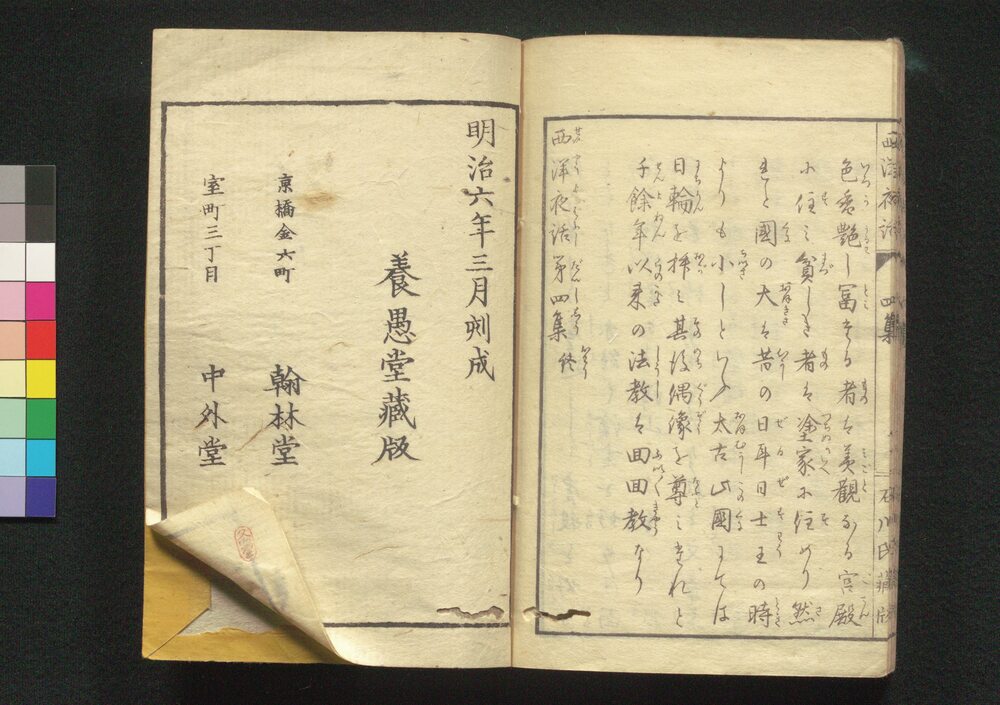 色香艶し冨そる者ハ美觀なる宮殿
に住ミ貧しき者ハ塗家に住めり然
れと國の大ハ昔の日耳日士王の時
よりも小しといふ太古此國にては
日輪を拝ミ其後偶像を尊ミされと
千餘年以来の法教ハ回回教なり
西洋夜話第四集終
西洋夜話
四集
石川氏藏版
明治六年三月刻成
養愚堂藏版
京橋金六町
翰林堂
室町三丁目
中外堂